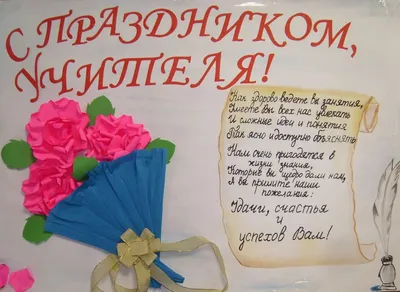 С ПРАЗДНИКОМ,
УЧИТЕЛЯ!
Как здорово ведете вы занятия,
Умеете вы всех нас увлекать
И сложные идеи и понятия
Так ясно и доступно объяснять
Нам очень пригодятся в
жизни знания,
Которые вы щедро дали нам,
А вы примите наши
пожелания:
Удачи, счастья
и
успехов Вам!